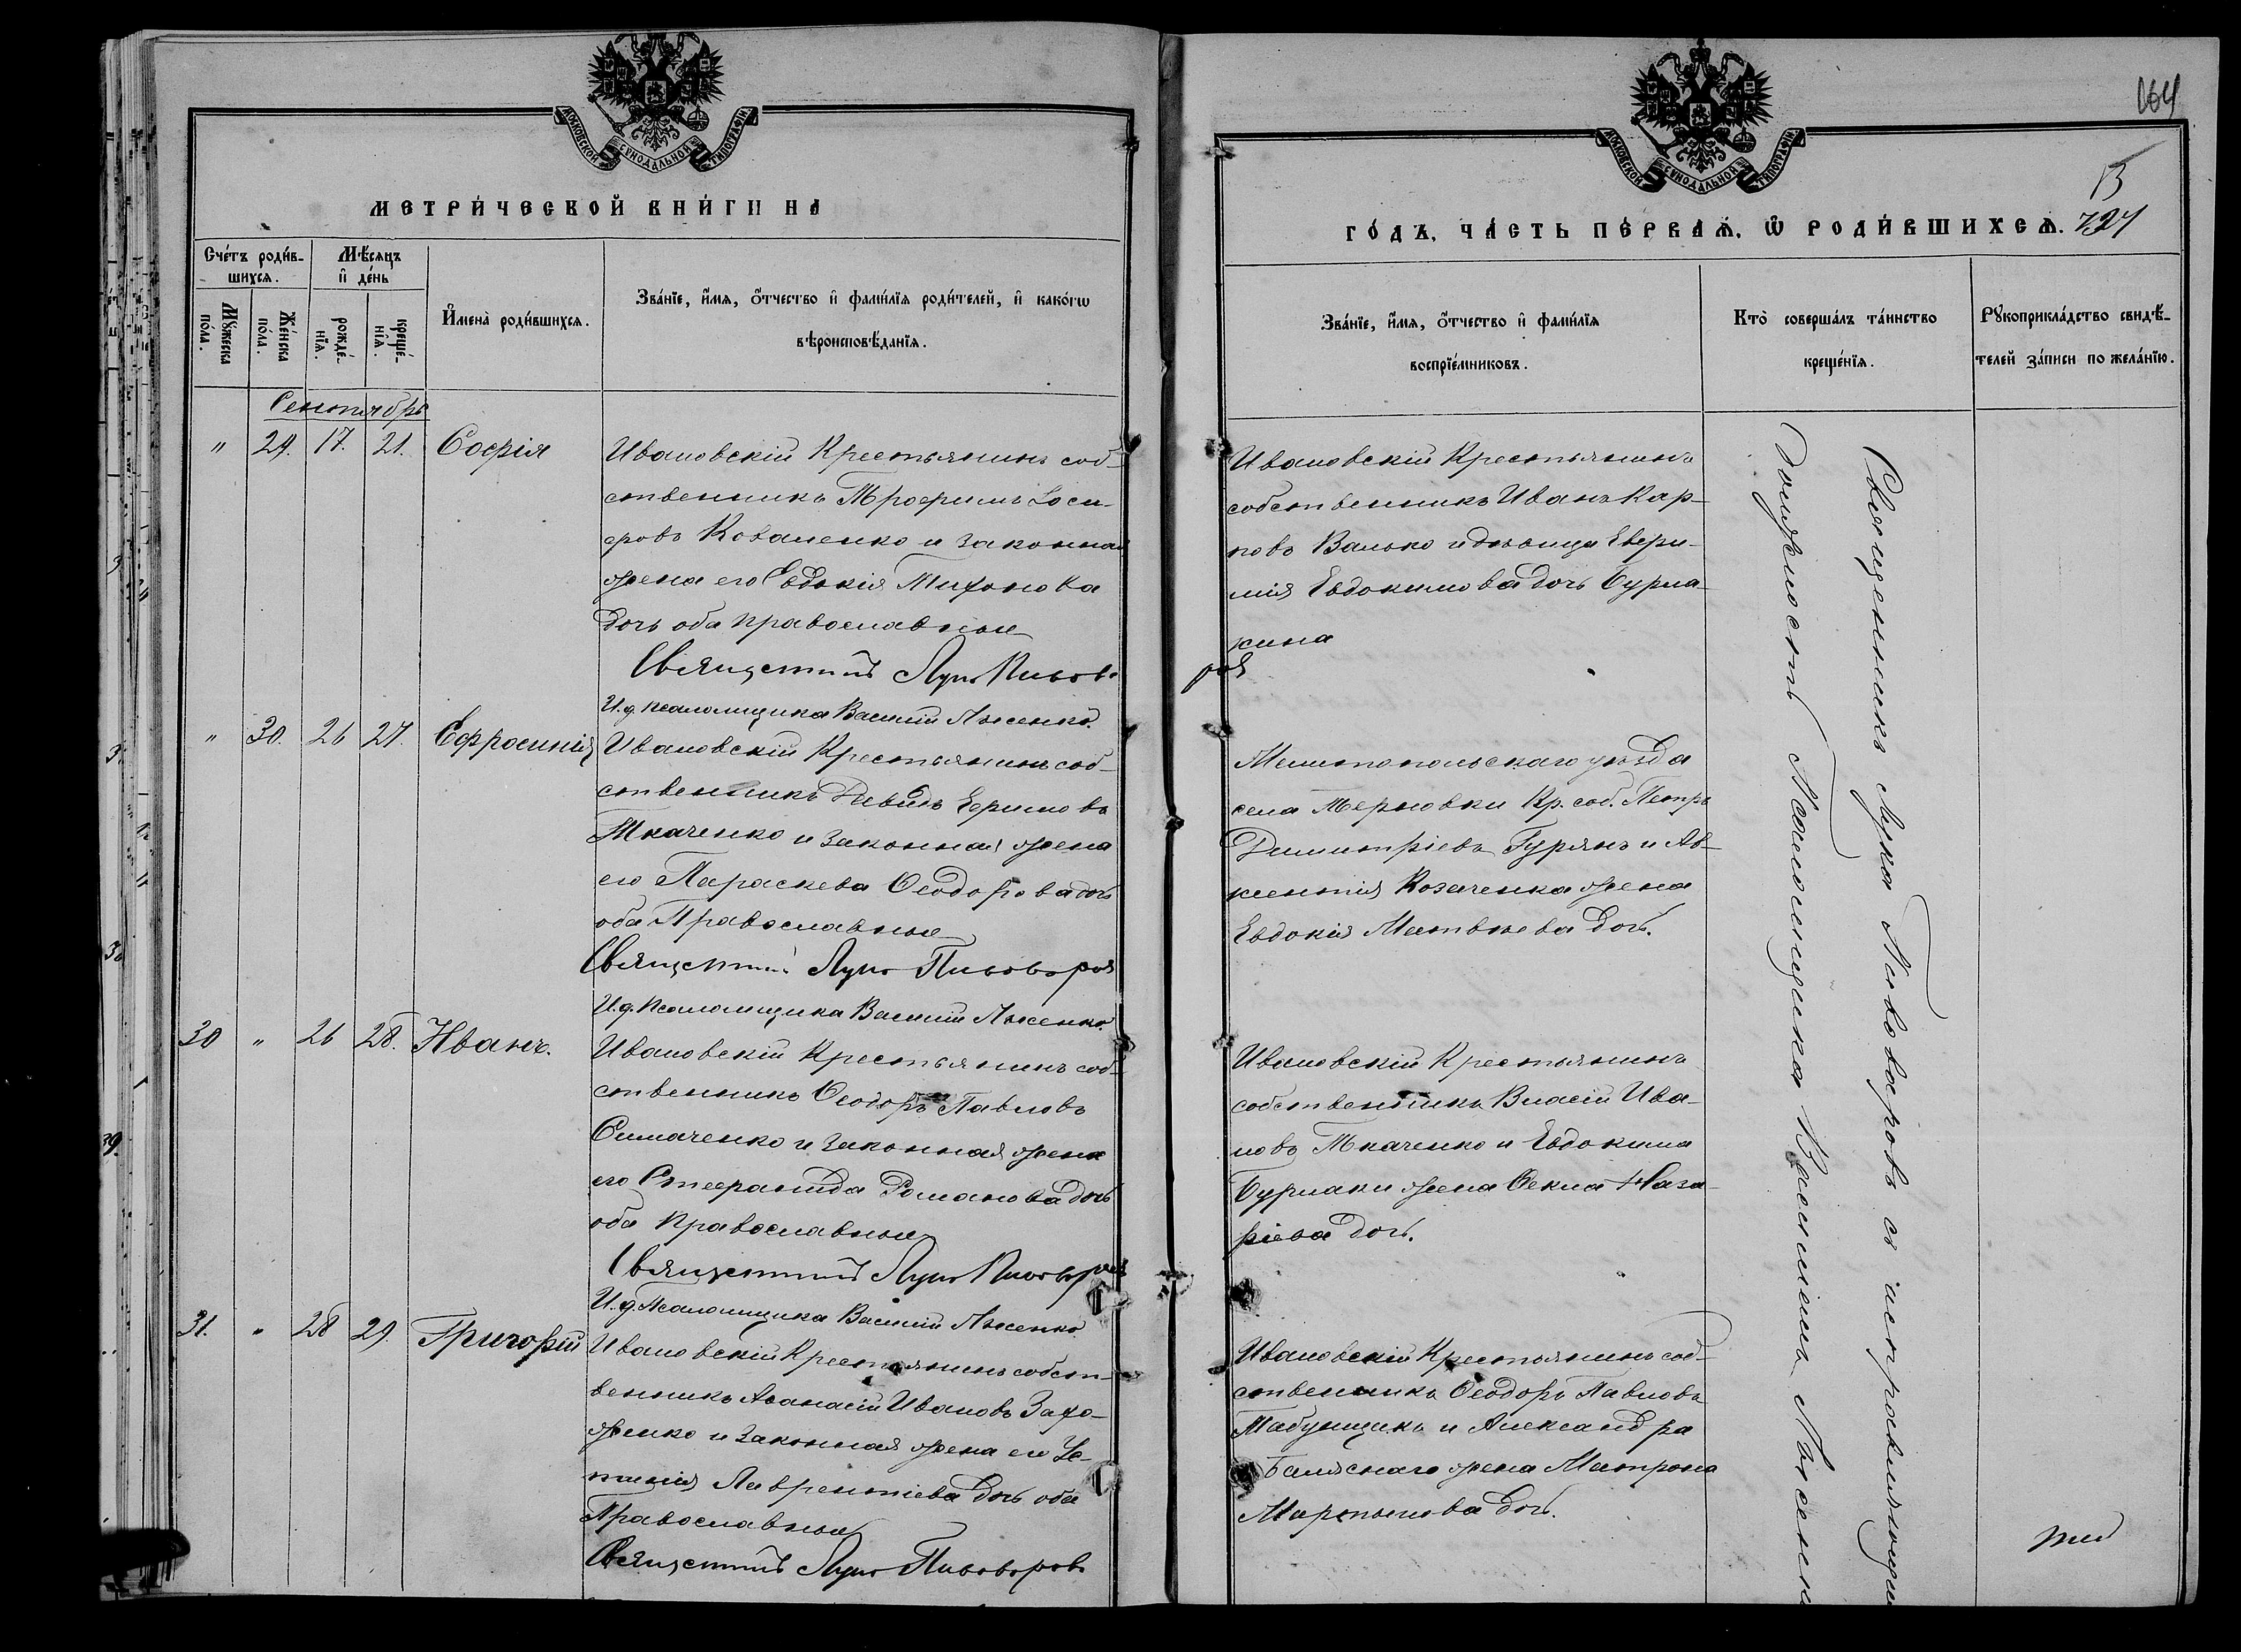 МОСКОВСКОЙ СѴНОДАЛЬНОЙ ТИПОГРАФІИ
МЕТРИ́ЧЕСКОЙ КНИ́ГИ НА
Сче́тъ роди́в-
шихсѧ.
Мѣ́сѧцъ
и҆ де́нь
Мꙋ́жеска
по́ла.
Же́нска
по́ла.
рожде́-
нїѧ.
креще́-
нїѧ.
И҆мена̀ роди́вшихсѧ.
Зва́нїе, и҆́мѧ, ѻ҆́тчество и҆ фами́лїѧ роди́телей, и҆ како́гѡ
вѣроисповѣ́данїѧ.
Сентябрь
" 29. 17. 21. Софія
Ивановскій Крестьянинъ соб-
ственникъ Трофимъ Іоси-
фовъ Коваленко и законная
жена его Евдокія Тихонова
дочь оба православные
Священникъ Лука Пивова
ровъ
И.д. псаломщика Василій Лысенко.
" 30. 26 27. Ефросинія
Ивановскій Крестьянинъ соб-
ственникъ Давидъ Ефимовъ
Ткаченко и законная жена
его Параскева Ѳеодорова дочь
оба Православные
Священникъ Лука Пивоваровъ
И.д. Псаломщика Василій Лысенко.
30 " 26 28. Иванъ.
Ивановскій Крестьянинъ соб-
ственникъ Ѳеодоръ Павловъ
Симаченко и законная жена
его Стефанида Романова дочь
оба Православные
Священникъ Лука Пивоваровъ
И.д. Псаломщика Василій Лысенко
31. " 28 29. Григорій
Ивановскій Крестьянинъ собст-
венникъ Аѳанасій Ивановъ Захо-
женко и законная жена его
Лаврентіева дочь оба
Православные
Священникъ Лука Пивоваровъ
МОСКОВСКОЙ СѴНОДАЛЬНОЙ ТИПОГРАФІИ
164
ГО́ДЪ, ЧА́СТЬ ПЕ́РВАѦ, Ѡ҆ РОДИ́ВШИХСѦ. 727
Зва́нїе, и҆́мѧ, ѻ҆́тчество и҆ фами́лїѧ
воспрїе́мниковъ.
Кто̀ соверша́лъ та́инство
креще́нїѧ.
Рꙋкоприкла́дство свидѣ́-
телей за́писи по жела́нїю.
Ивановскій Крестьянинъ
собственникъ Иванъ Кар-
повъ Валько и дѣвица Евфи-
мія Евдокимова дочь Бурла-
кина
Мелитопольскаго уѣзда
села Терновки Кр. соб. Петръ
Димитріевъ Гурянъ и Ав-
ксентія Козаченка жена
Евдокія Матвѣева дочь.
Ивановскій Крестьянинъ
собственникъ Власій Ива-
новъ Ткаченко и Евдокима
Бурлаки жена Ѳекла Наза-
ріева дочь.
Ивановскій Крестьянинъ соб-
ственникъ Ѳеодоръ Павловъ
Табунщикъ и Александра
Балясного жена Матрона
Мартынова дочь.
Священникъ Лука Пивоваровъ съ исправляющи
должность Псаломщика Василіемъ Лысенк